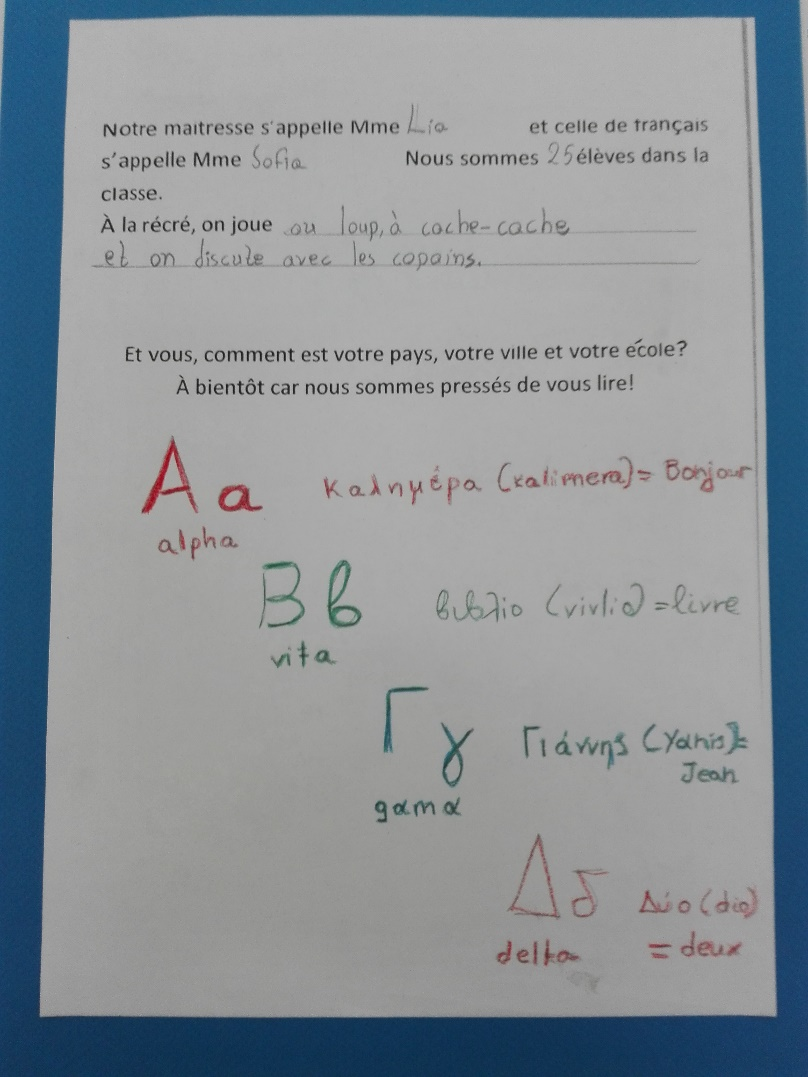 Notre maitresse s'appelle Mme Lia et celle de français
s'appelle Mme Sofia Nous sommes 25 élèves dans la
classe.
À la récré, on joue au loup, à cache-cache
et on discute avec les copains.
Et vous, comment est votre pays, votre ville et votre école?
À bientôt car nous sommes pressés de vous lire!
A a καλημέρα (kalimera) = Bonjour
alpha
B β βιβλιο (vivlio) = livre
vita
Γ γ Γιάννης (Yanis) =
Jean
gama
Δ δ Δύο (dio)
delta = deux